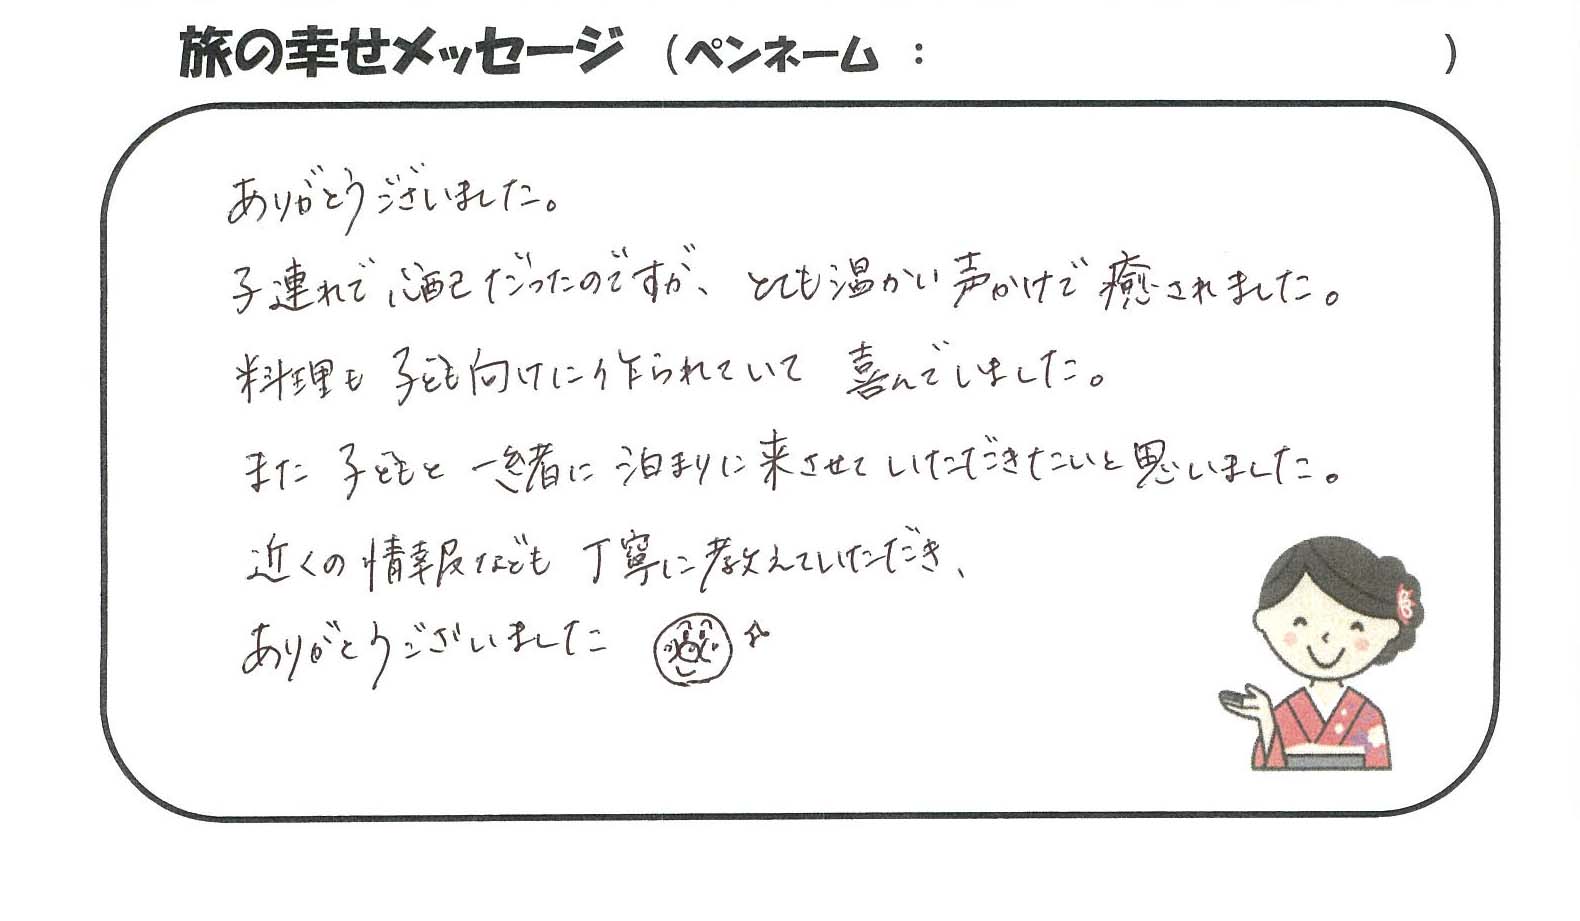 旅の幸せメッセージ (ペンネーム : )
ありがとうございました。
子連れで心配だったのですが、とても温かい声かけで癒されました。
料理も子ども向けに作られていて 喜んでいました。
また子どもと一緒に泊まりに来させていただきたいと思いました。
近くの情報なども丁寧に教えていただき、
ありがとうございました